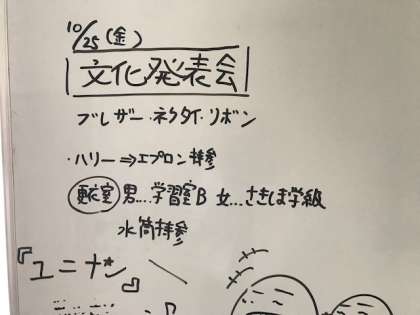 10/25(金)
文化発表会
ブレザー・ネクタイ・リボン
・ハリー⇒エプロン持参
更衣室 男…学習室B 女…さきしま学級
水筒持参
『ユニナン』